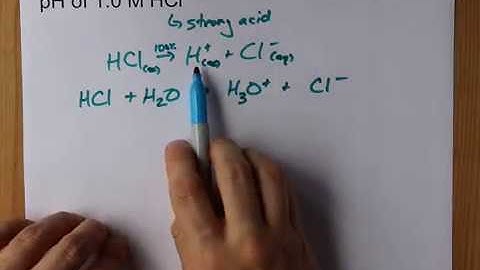 pH of 1.0 M HCl
↳ strong acid
HCl(aq) 100% → H⁺(aq) + Cl⁻(aq)
HCl + H₂O → H₃O⁺ + Cl⁻